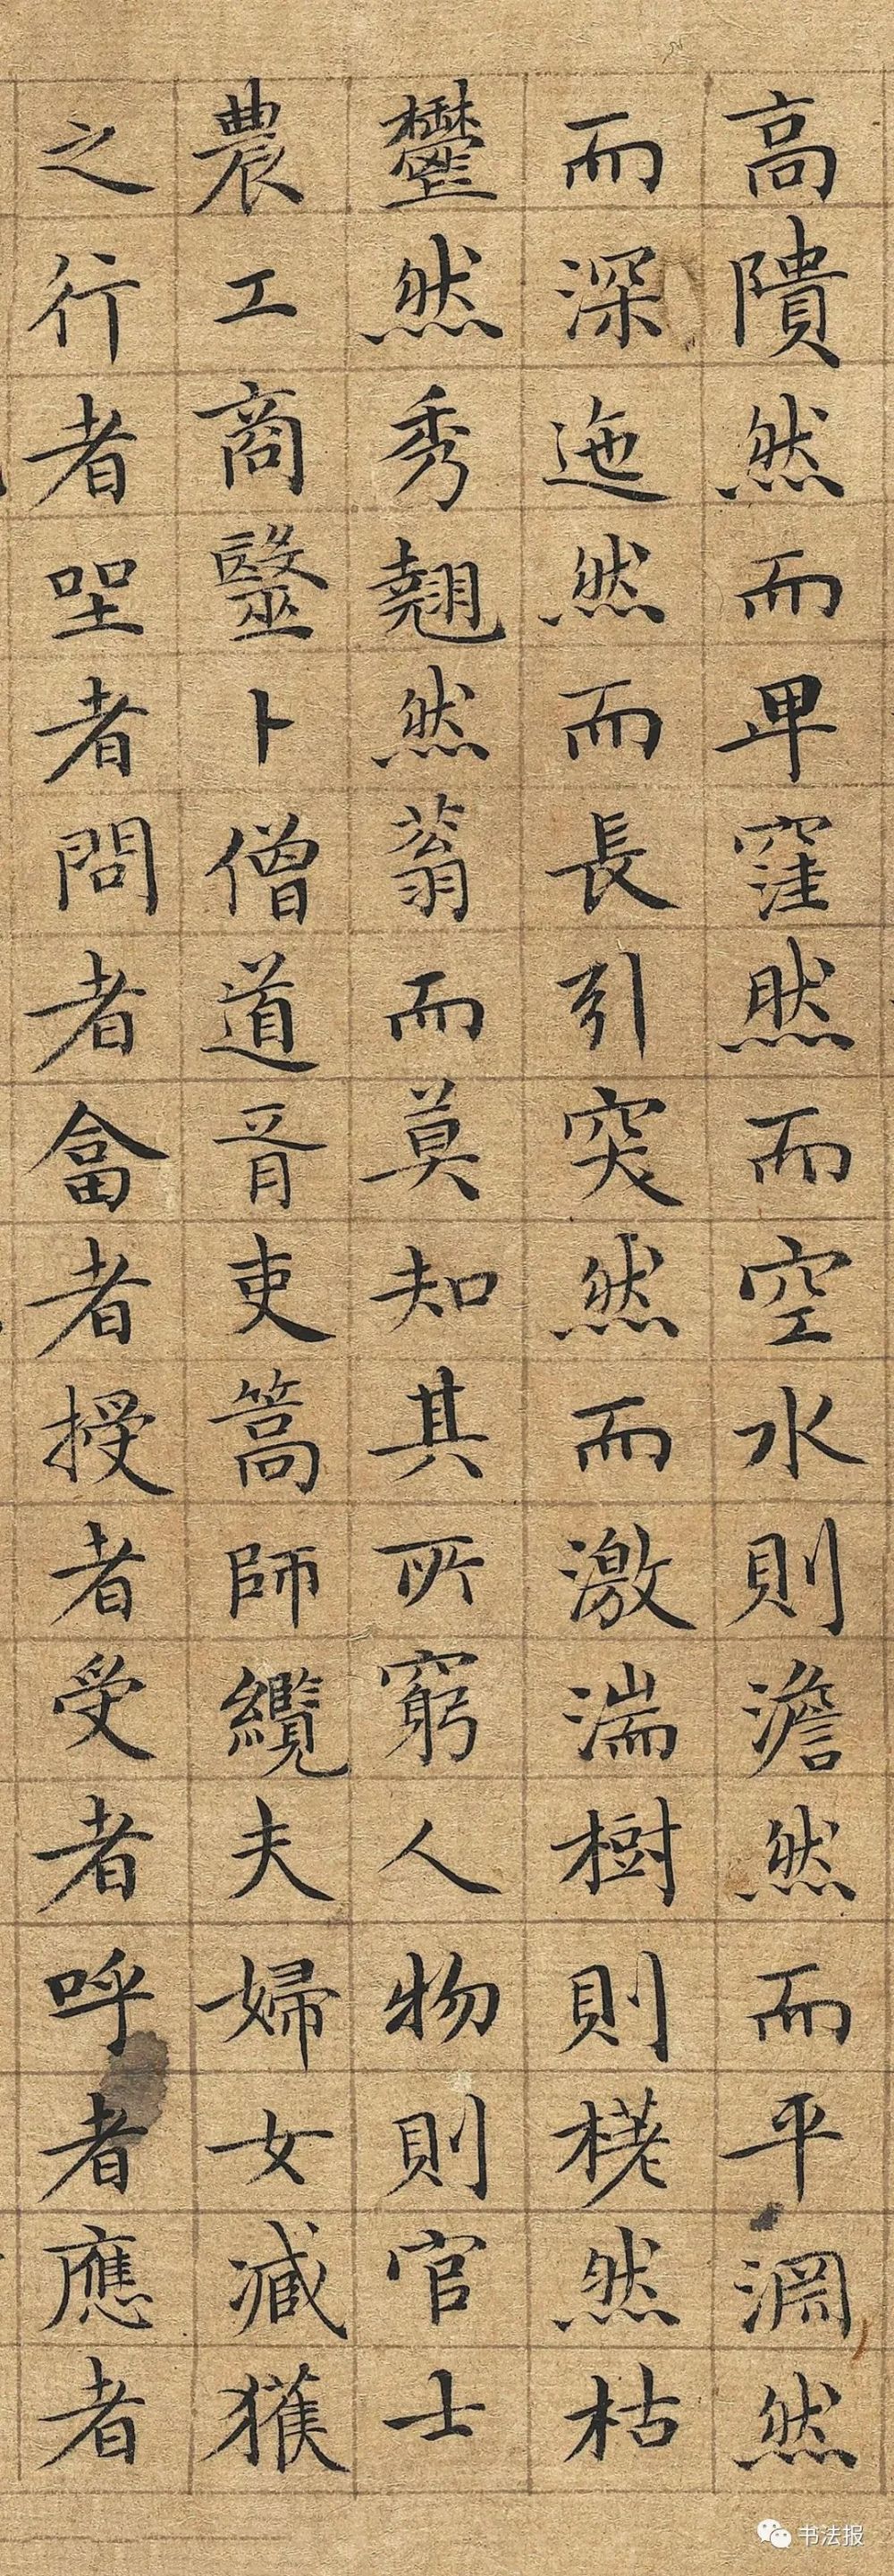 高隤然而卑窪然而空水則澹然而平淵然
而深迤然而長引突然而激湍樹則樷然枯
鬱然秀翹然蓊而莫知其所窮人物則官士
農工商毉卜僧道胥吏篙師纜夫婦女臧獲
之行者坐者問者畣者授者受者呼者應者
书法报